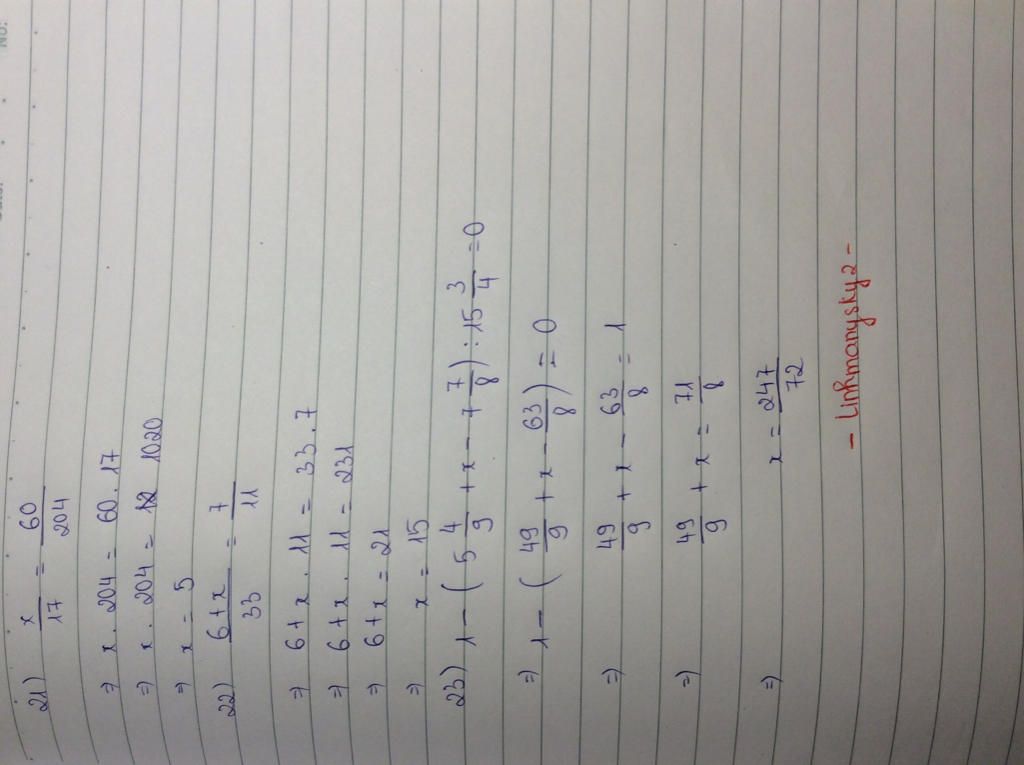 No:
21) x/17 = 60/204
=) x . 204 = 60 . 17
=) x . 204 = 1020
=) x = 5
22) 6+x/33 = 7/11
=) 6+x . 11 = 33 . 7
=) 6+x . 11 = 231
=) 6+x = 21
=) x = 15
23) 1 - ( 5 4/9 + x - 7 7/8 ) : 15 3/4 = 0
=) 1 - ( 49/9 + x - 63/8 ) = 0
=) 49/9 + x - 63/8 = 1
=) 49/9 + x = 71/8
=) x = 247/72
- Linhmanysky2 -